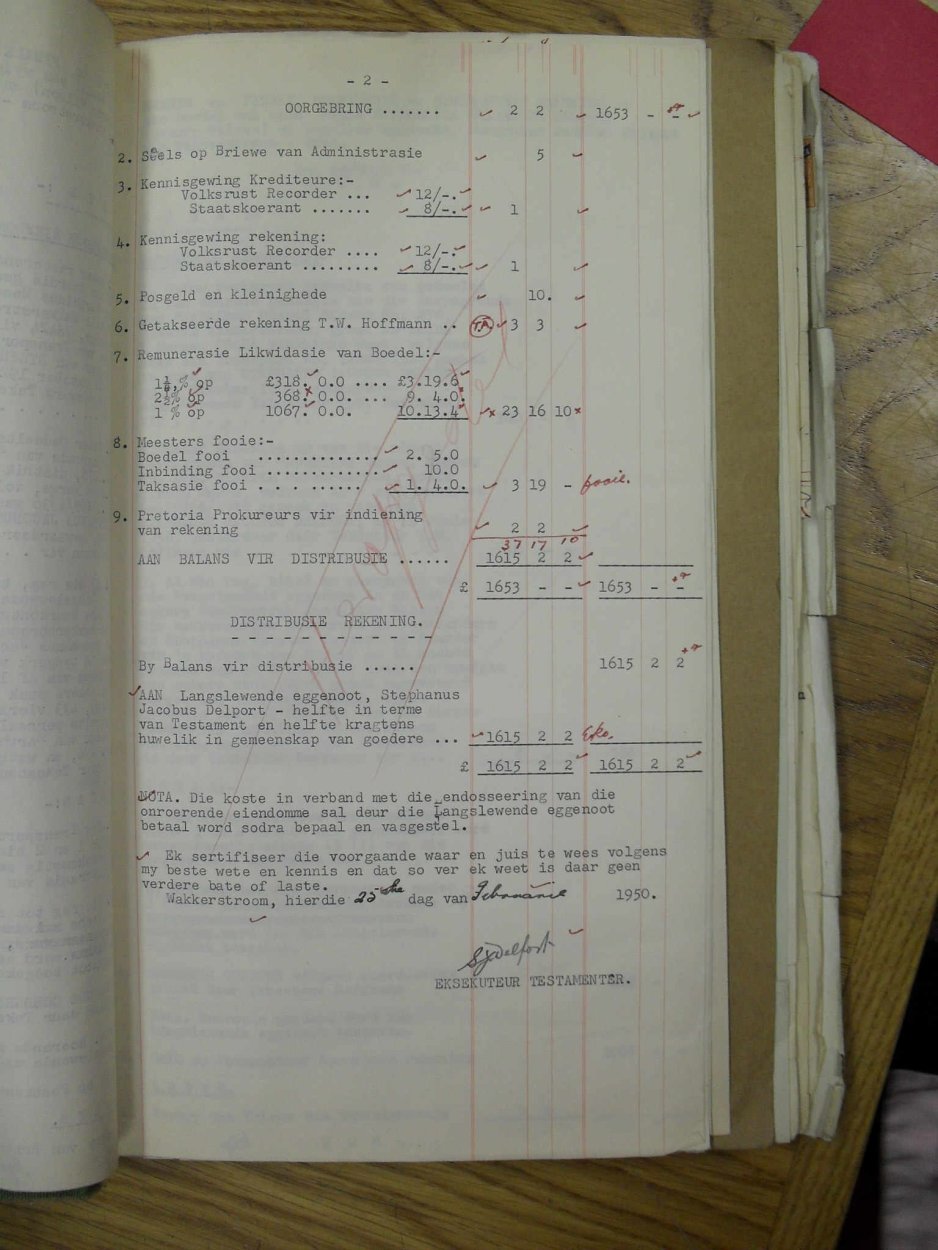 - 2 -
OORGEBRING ....... 2 2 1653 - -
2. Seels op Briewe van Administrasie 5
3. Kennisgewing Krediteure:-
Volksrust Recorder ... 12/-.
Staatskoerant ....... 8/-. 1
4. Kennisgewing rekening:
Volksrust Recorder .... 12/-.
Staatskoerant ......... 8/-. 1
5. Posgeld en kleinighede 10.
6. Getakseerde rekening T.W. Hoffmann .. T.A. 3 3
7. Remunerasie Likwidasie van Boedel:-
1¼,% op £318. 0.0 .... £3.19.6
2½% op 368. 0.0. ... 9. 4.0.
1 % op 1067. 0.0. 10.13.4 x 23 16 10 x
8. Meesters fooie:-
Boedel fooi .............. 2. 5.0
Inbinding fooi ............ 10.0
Taksasie fooi . . . ...... 1. 4.0. 3 19 - fooie.
9. Pretoria Prokureurs vir indiening
van rekening 2 2
37 17 10
AAN BALANS VIR DISTRIBUSIE ...... 1615 2 2
£ 1653 - - 1653 - -
DISTRIBUSIE REKENING.
- - - - - - - - - - - -
By Balans vir distribusie ...... 1615 2 2
AAN Langslewende eggenoot, Stephanus
Jacobus Delport - helfte in terme
van Testament en helfte kragtens
huwelik in gemeenskap van goedere ... 1615 2 2
£ 1615 2 2 1615 2 2
NOTA. Die koste in verband met die endosseering van die
onroerende eiendomme sal deur die Langslewende eggenoot
betaal word sodra bepaal en vasgestel.
Ek sertifiseer die voorgaande waar en juis te wees volgens
my beste wete en kennis en dat so ver ek weet is daar geen
verdere bate of laste.
Wakkerstroom, hierdie 25ste dag van Februarie 1950.
SJDelport
EKSEKUTEUR TESTAMENTêR.